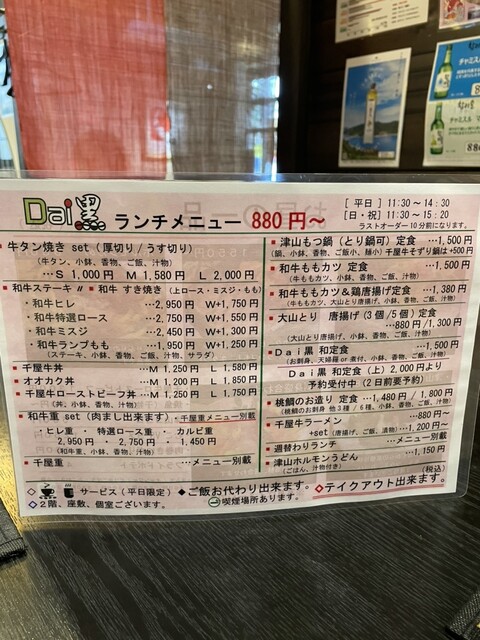 Dai黒 ランチメニュー 880円～
[ 平日 ] 11:30～14:30
[日・祝] 11:30～15:20
ラストオーダー10分前になります。
牛タン焼き set (厚切り/うす切り)
(牛タン、小鉢、香物、ご飯、汁物)
…S 1,000円 M 1,580円 L 2,000円
和牛ステーキ〃 和牛 すき焼き (上ロース・ミスジ・もも)
・和牛ヒレ …2,950円 W+1,750円
・和牛特選ロース …2,750円 W+1,550円
・和牛ミスジ …2,450円 W+1,300円
・和牛ランプもも …1,950円 W+1,250円
(ステーキ、小鉢、香物、ご飯、汁物、サラダ)
千屋牛丼 …M 1,250円 L 1,580円
オオカク丼 …M 1,200円 L 1,850円
千屋牛ローストビーフ丼 …M 1,250円 L 1,750円
(丼、小鉢、香物、汁物)
和牛重 set (肉まし出来ます) ・千屋重メニュー別載
・ヒレ重 ・特選ロース重 ・カルビ重
2,950円 ・2,750円 ・1,450円
(和牛重、小鉢、香物、汁物)
千屋重 …メニュー別載
津山もつ鍋 (とり鍋可) 定食 …1,500円
千屋牛そずり鍋は+500円
和牛ももカツ 定食 …1,500円
(牛ももカツ、小鉢、香物、ご飯、汁物)
和牛ももカツ＆鶏唐揚げ定食 …1,380円
(牛ももカツ、大山とり唐揚げ、小鉢、香物、ご飯、汁物)
大山とり 唐揚げ (3個/5個) 定食
…880円/1,300円
(大山とり唐揚げ、小鉢、香物、ご飯、汁物)
Dai黒 和定食 …1,500円
(お刺身、天婦羅 or 煮付、小鉢、香物、ご飯、汁物)
Dai黒 和定食 (上) 2,000円より
予約受付中 (2日前要予約)
桃鯛のお造り 定食 …1,480円/1,800円
(桃鯛のお刺身 他3種/6種、小鉢、香物、ご飯、汁物)
千屋牛ラーメン …880円～
+set (唐揚げ、ご飯、漬物) …1,200円～
週替わりランチ …メニュー別載
津山ホルモンうどん …1,150円
(ごはん、汁物付き)
(税込)
◇ サービス (平日限定) ◆ご飯お代わり出来ます。 ◇テイクアウト出来ます。
◇2階、座敷、個室ございます。 喫煙場所あります。